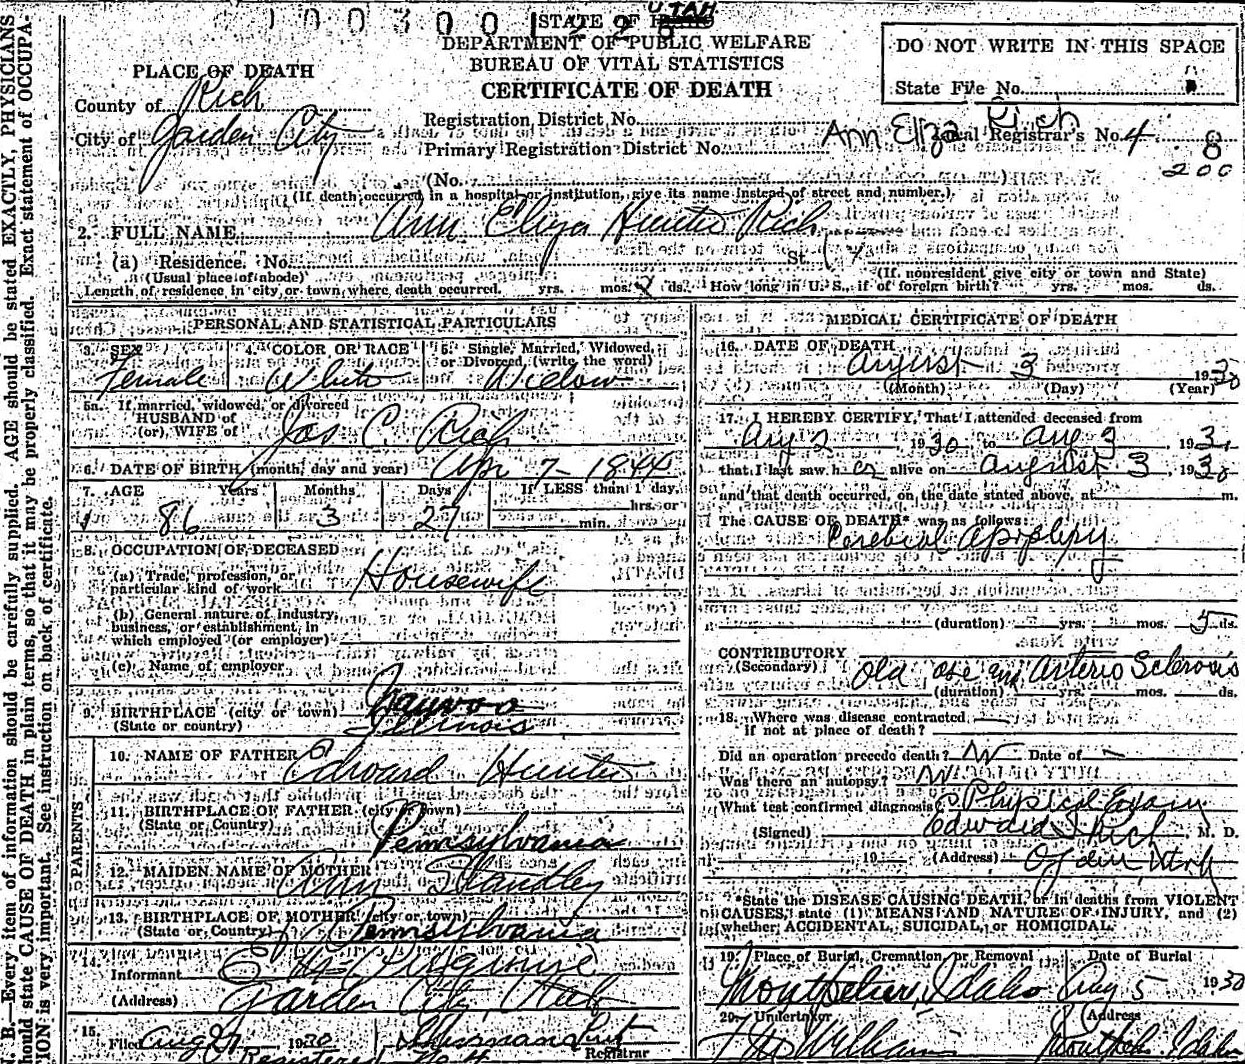 1 0 0 3 0 0 1 2 2 8
STATE OF UTAH
DEPARTMENT OF PUBLIC WELFARE
BUREAU OF VITAL STATISTICS
CERTIFICATE OF DEATH
DO NOT WRITE IN THIS SPACE
State File No.
PLACE OF DEATH
County of Rich
City of Garden City
Registration District No.
Primary Registration District No.
Ann Eliza Rich
Local Registrar's No. 4
8
200
(No.
(If death occurred in a hospital or institution, give its name instead of street and number.)
2. FULL NAME Ann Eliza Hunter Rich
(a) Residence. No. St.
(Usual place of abode) (If nonresident give city or town and State)
Length of residence in city or town where death occurred. yrs. mos. 2 ds. How long in U. S., if of foreign birth? yrs. mos. ds.
PERSONAL AND STATISTICAL PARTICULARS
3. SEX Female
4. COLOR OR RACE White
5. Single, Married, Widowed, or Divorced, (write the word) Widow
5a. If married, widowed, or divorced
HUSBAND of
(or) WIFE of Jos C. Rich
6. DATE OF BIRTH (month, day and year) Apr 7 - 1844
7. AGE Years Months Days If LESS than 1 day,
86 3 27 hrs. or
min.
8. OCCUPATION OF DECEASED
(a) Trade, profession, or
particular kind of work Housewife
(b) General nature of industry,
business, or establishment, in
which employed (or employer)
(c) Name of employer
9. BIRTHPLACE (city or town) Nauvoo
(State or country) Illinois
PARENTS
10. NAME OF FATHER Edward Hunter
11. BIRTHPLACE OF FATHER (city or town)
(State or Country) Pennsylvania
12. MAIDEN NAME OF MOTHER Ann Standley
13. BIRTHPLACE OF MOTHER (city or town)
(State or Country) Pennsylvania
14.
Informant
(Address) Garden City, Utah
15.
Filed Aug 27 1930
Registrar
MEDICAL CERTIFICATE OF DEATH
16. DATE OF DEATH
August 3 1930
(Month) (Day) (Year)
17. I HEREBY CERTIFY, That I attended deceased from
Aug 2 1930 to Aug 3, 193
that I last saw her alive on August 3, 1930
and that death occurred, on the date stated above, at m.
The CAUSE OF DEATH* was as follows:
Cerebral Apoplexy
(duration) yrs. mos. 5 ds.
CONTRIBUTORY
(Secondary) Old age and Arterio Sclerosis
(duration) yrs. mos. ds.
18. Where was disease contracted
if not at place of death?
Did an operation precede death? Date of
Was there an autopsy?
What test confirmed diagnosis? Physical Exam
(Signed) Edward I Rich M. D.
19 (Address) Ogden Utah
*State the DISEASE CAUSING DEATH, or in deaths from VIOLENT
CAUSES, state (1) MEANS AND NATURE OF INJURY, and (2)
whether ACCIDENTAL, SUICIDAL, or HOMICIDAL.
19. Place of Burial, Cremation, or Removal Date of Burial
Montpelier, Idaho Aug 5 1930
20. Undertaker Address
Williams Idaho
B.—Every item of information should be carefully supplied. AGE should be stated EXACTLY, PHYSICIANS
should state CAUSE OF DEATH in plain terms, so that it may be properly classified. Exact statement of OCCUPA-
TION is very important. See instruction on back of certificate.